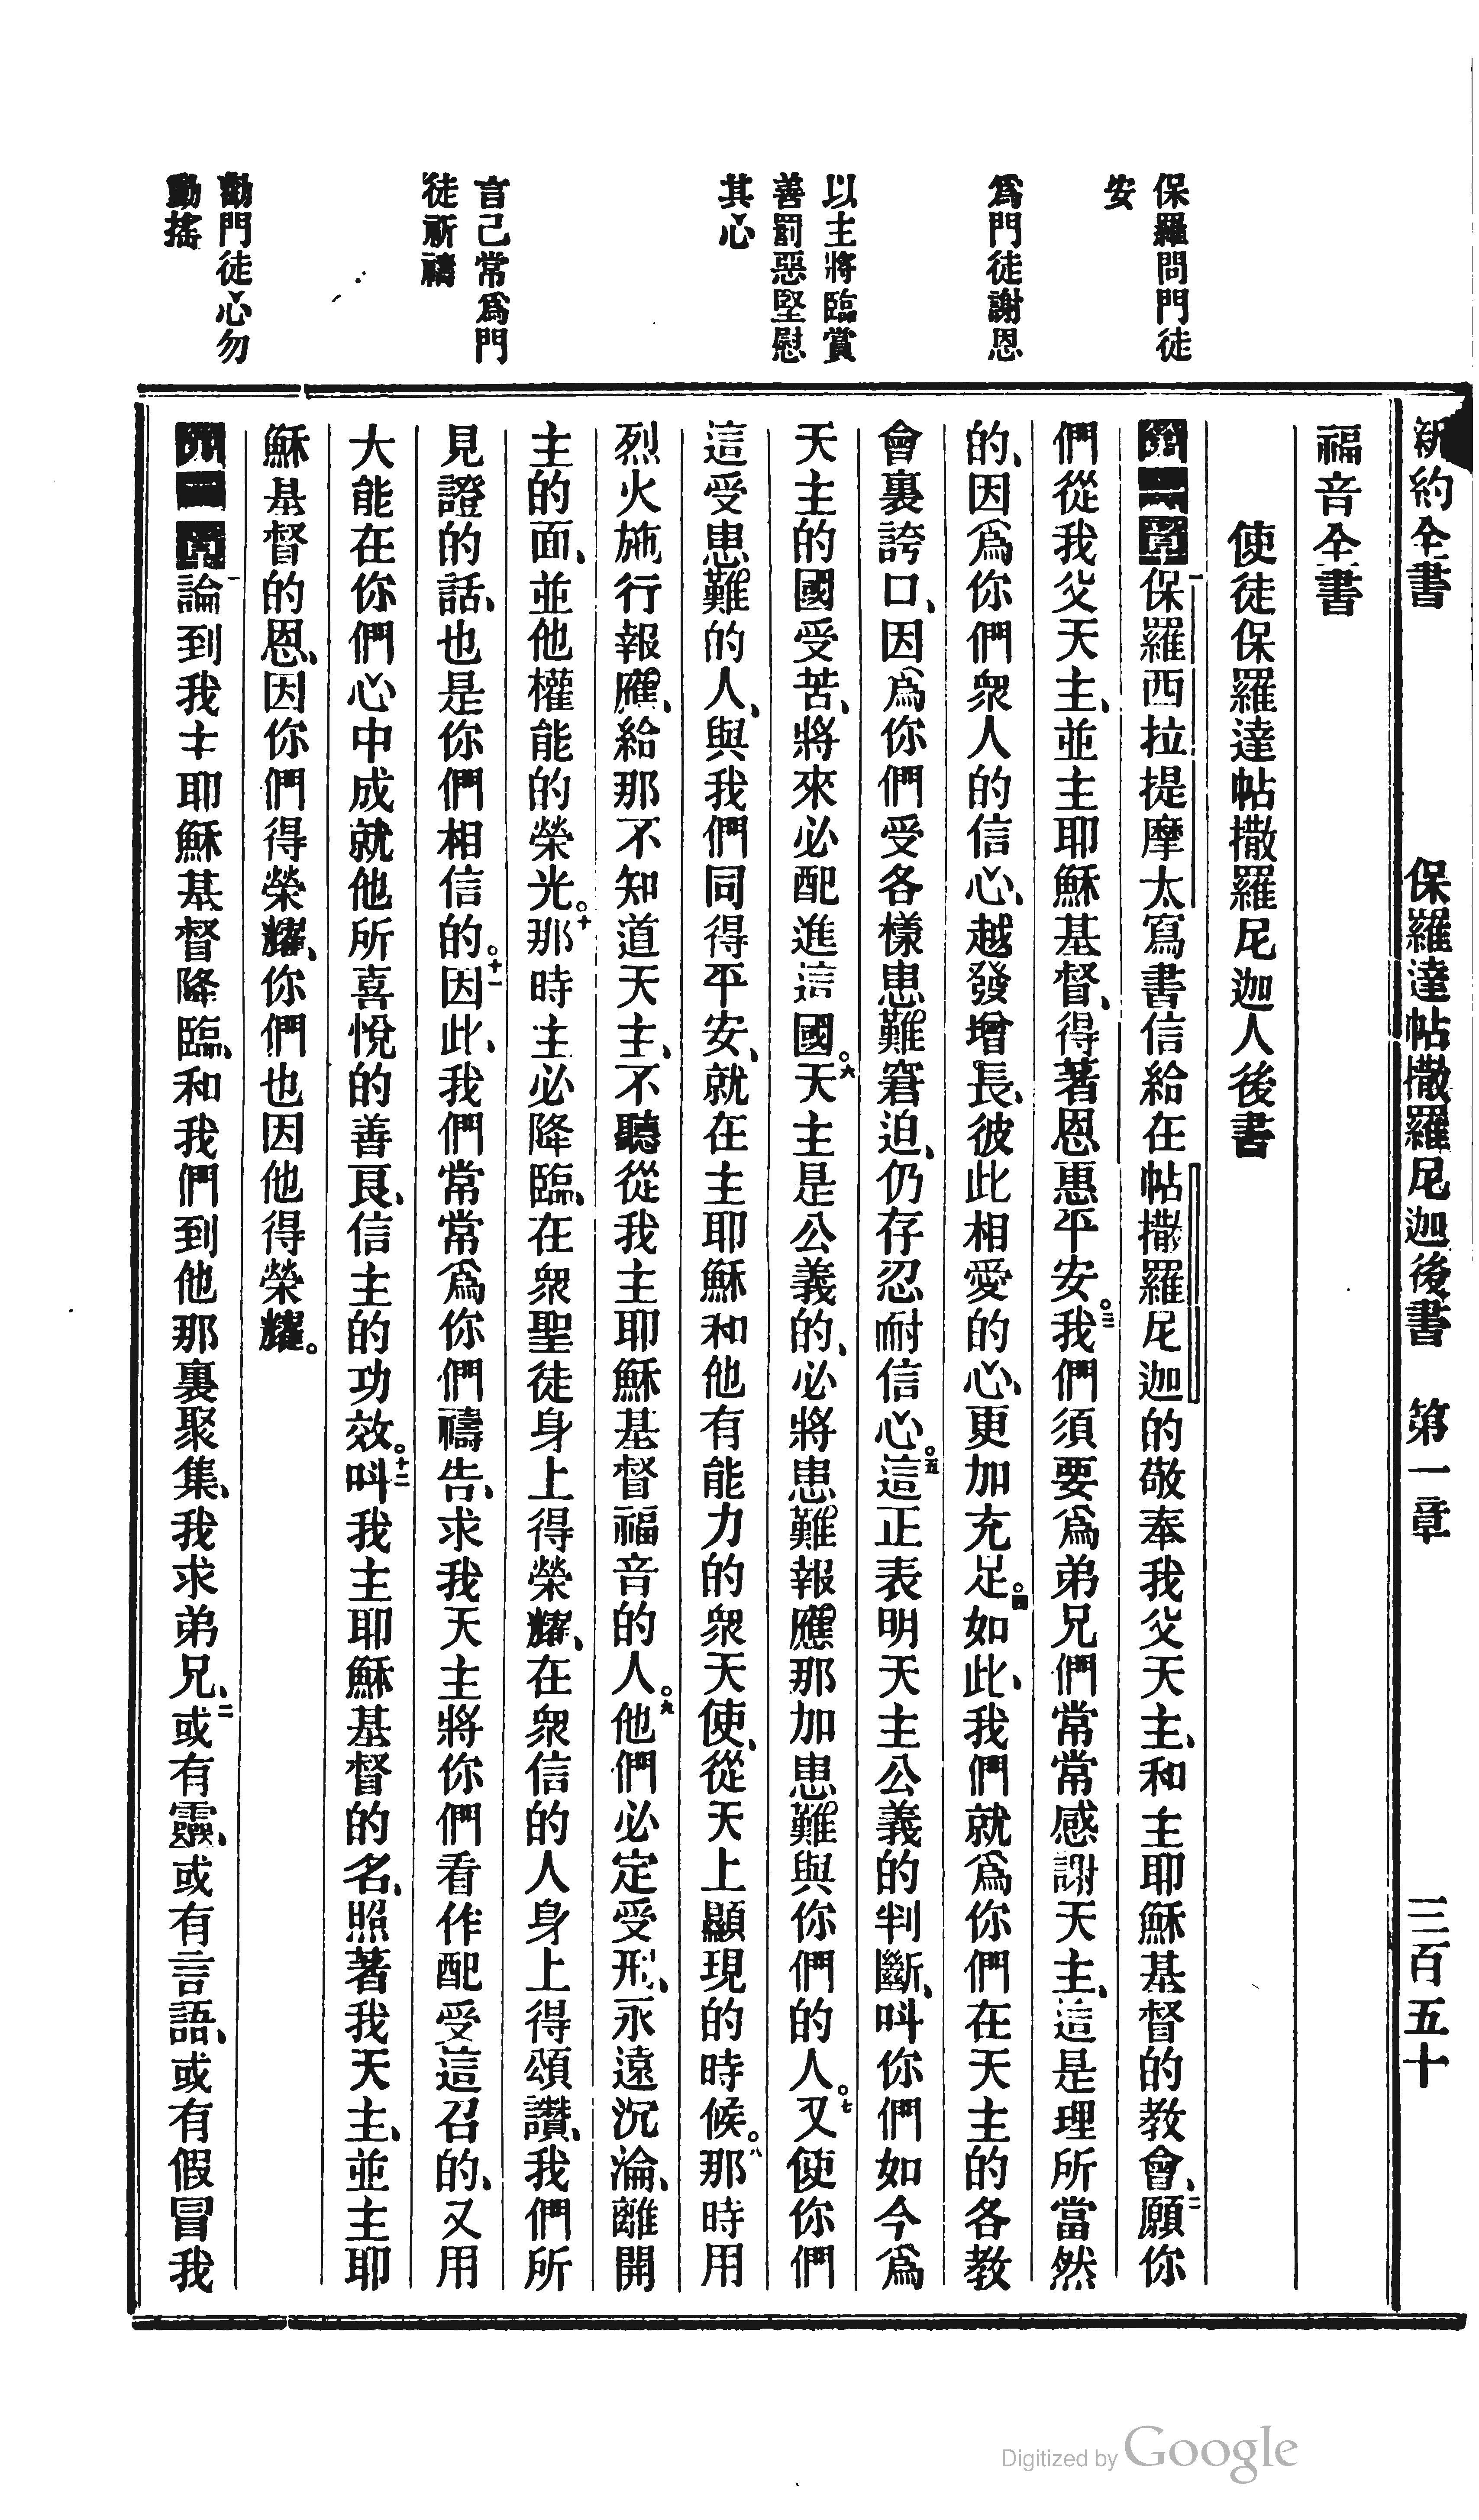 新約全書 保羅達帖撒羅尼迦後書 第一章 三百五十
保羅問門徒
安
爲門徒謝恩
以主將臨賞
善罰惡堅慰
其心
言己常爲門
徒祈禱
勸門徒心勿
動搖
福音全書
使徒保羅達帖撒羅尼迦人後書
第一章一保羅西拉提摩太寫書信給在帖撒羅尼迦的敬奉我父天主、和主耶穌基督的教會、二願你
們從我父天主、並主耶穌基督、得著恩惠平安。三我們須要爲弟兄們常常感謝天主、這是理所當然
的、因爲你們衆人的信心、越發增長、彼此相愛的心、更加充足。四如此、我們就爲你們在天主的各教
會裏誇口、因爲你們受各樣患難窘迫、仍存忍耐信心。五這正表明天主公義的判斷、呌你們如今爲
天主的國受苦、將來必配進這國。六天主是公義的、必將患難報應那加患難與你們的人。七又使你們
這受患難的人、與我們同得平安、就在主耶穌和他有能力的衆天使、從天上顯現的時候。八那時用
烈火施行報應、給那不知道天主、不聽從我主耶穌基督福音的人。九他們必定受刑、永遠沉淪、離開
主的面、並他權能的榮光。十那時主必降臨、在衆聖徒身上得榮耀、在衆信的人身上得頌讚、我們所
見證的話、也是你們相信的。十一因此、我們常常爲你們禱告、求我天主將你們看作配受這召的、又用
大能在你們心中成就他所喜悅的善良、信主的功效。十二呌我主耶穌基督的名、照著我天主、並主耶
穌基督的恩、因你們得榮耀、你們也因他得榮耀。
第二章一論到我主耶穌基督降臨、和我們到他那裏聚集、我求弟兄、二或有靈、或有言語、或有假冒我
Digitized by Google